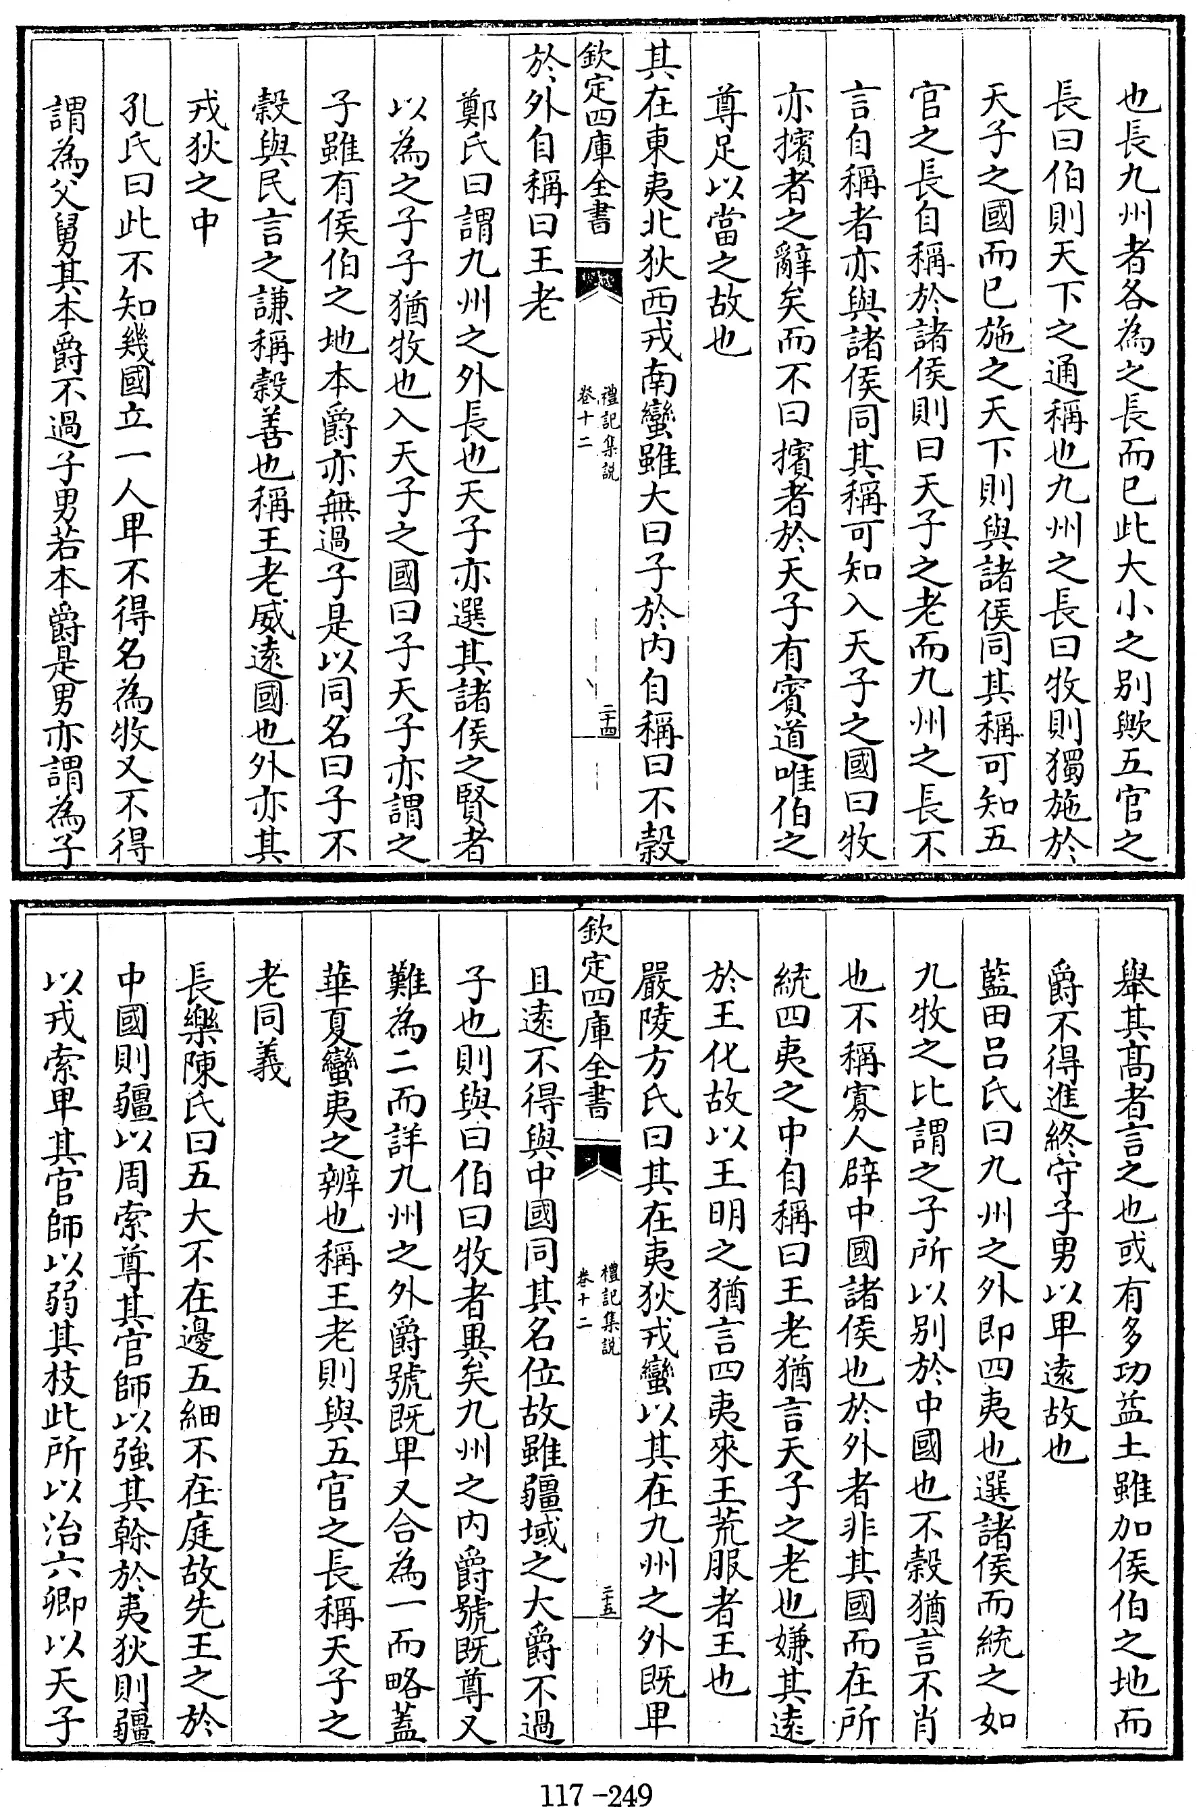 也長九州者各為之長而已此大小之别歟五官之
長曰伯則天下之通稱也九州之長曰牧則獨施於
天子之國而已施之天下則與諸侯同其稱可知五
官之長自稱於諸侯則曰天子之老而九州之長不
言自稱者亦與諸侯同其稱可知入天子之國曰牧
亦擯者之辭矣而不曰擯者於天子有賓道唯伯之
尊足以當之故也
其在東夷北狄西戎南蠻雖大曰子於内自稱曰不穀
欽定四庫全書
禮記集説
卷十二
二十四
於外自稱曰王老
鄭氏曰謂九州之外長也天子亦選其諸侯之賢者
以為之子子猶牧也入天子之國曰子天子亦謂之
子雖有侯伯之地本爵亦無過子是以同名曰子不
穀與民言之謙稱穀善也稱王老威逺國也外亦其
戎狄之中
孔氏曰此不知幾國立一人卑不得名為牧又不得
謂為父舅其本爵不過子男若本爵是男亦謂為子
舉其髙者言之也或有多功益土雖加侯伯之地而
爵不得進終守子男以卑逺故也
藍田吕氏曰九州之外即四夷也選諸侯而統之如
九牧之比謂之子所以别於中國也不穀猶言不肖
也不稱寡人辟中國諸侯也於外者非其國而在所
統四夷之中自稱曰王老猶言天子之老也嫌其逺
於王化故以王明之猶言四夷來王荒服者王也
嚴陵方氏曰其在夷狄戎蠻以其在九州之外既卑
欽定四庫全書
禮記集説
卷十二
二十五
且逺不得與中國同其名位故雖疆域之大爵不過
子也則與曰伯曰牧者異矣九州之内爵號既尊又
難為二而詳九州之外爵號既卑又合為一而略蓋
華夏蠻夷之辨也稱王老則與五官之長稱天子之
老同義
長樂陳氏曰五大不在邊五細不在庭故先王之於
中國則疆以周索尊其官師以強其幹於夷狄則疆
以戎索卑其官師以弱其枝此所以治六卿以天子
117-249